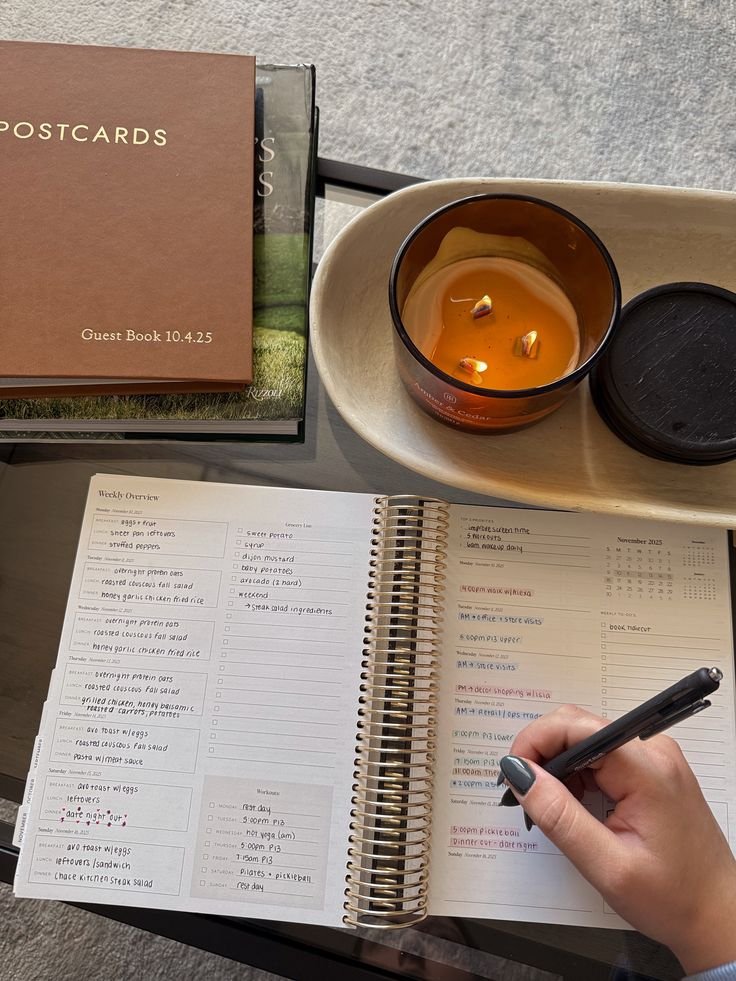 POSTCARDS
Guest Book 10.4.25
'S
S
Rizzoli
Amber & Cedar
Weekly Overview
Monday November 10, 2025
BREAKFAST eggs + fruit
LUNCH sheet pan leftovers
DINNER stuffed peppers
Tuesday November 11, 2025
BREAKFAST overnight protein oats
LUNCH roasted couscous fall salad
DINNER honey garlic chicken fried rice
Wednesday November 12, 2025
BREAKFAST overnight protein oats
LUNCH roasted couscous fall salad
DINNER honey garlic chicken fried rice
Thursday November 13, 2025
BREAKFAST overnight protein oats
LUNCH roasted couscous fall salad
DINNER grilled chicken, honey balsamic
roasted carrots, potatoes
Friday November 14, 2025
BREAKFAST avo toast w/eggs
LUNCH roasted couscous fall salad
DINNER Pasta w/meat sauce
Saturday November 15, 2025
BREAKFAST avo toast w/eggs
LUNCH leftovers
DINNER date night out
Sunday November 16, 2025
BREAKFAST avo toast w/eggs
LUNCH leftovers/sandwich
DINNER Chace kitchen steak salad
Grocery List
sweet potato
syrup
dijon mustard
baby potatoes
avocado (2 hard)
weekend
→ steak salad ingredients
Workouts
MONDAY rest day
TUESDAY 5:00pm P13
WEDNESDAY hot yoga (am)
THURSDAY 5:00pm P13
FRIDAY 7:15am P13
SATURDAY Pilates + pickleball
SUNDAY rest day
TOP 3 PRIORITIES
improve screen time
5 workouts
6am makeup daily
Monday November 10, 2025
4:00pm walk w/Alexa
Tuesday November 11, 2025
AM → office + store visits
5:00pm P13 upper
Wednesday November 12, 2025
AM → store visits
PM → decor shopping w/lisia
Thursday November 13, 2025
AM → Retail/ops
5:00pm P13 lower
Friday November 14, 2025
7:15am
11:00am
2:00pm
Saturday November 15, 2025
5:00pm pickleball
Dinner out - date night
Sunday November 16, 2025
November 2025
S M T W T F S
WEEKLY TO-DO'S
book haircut